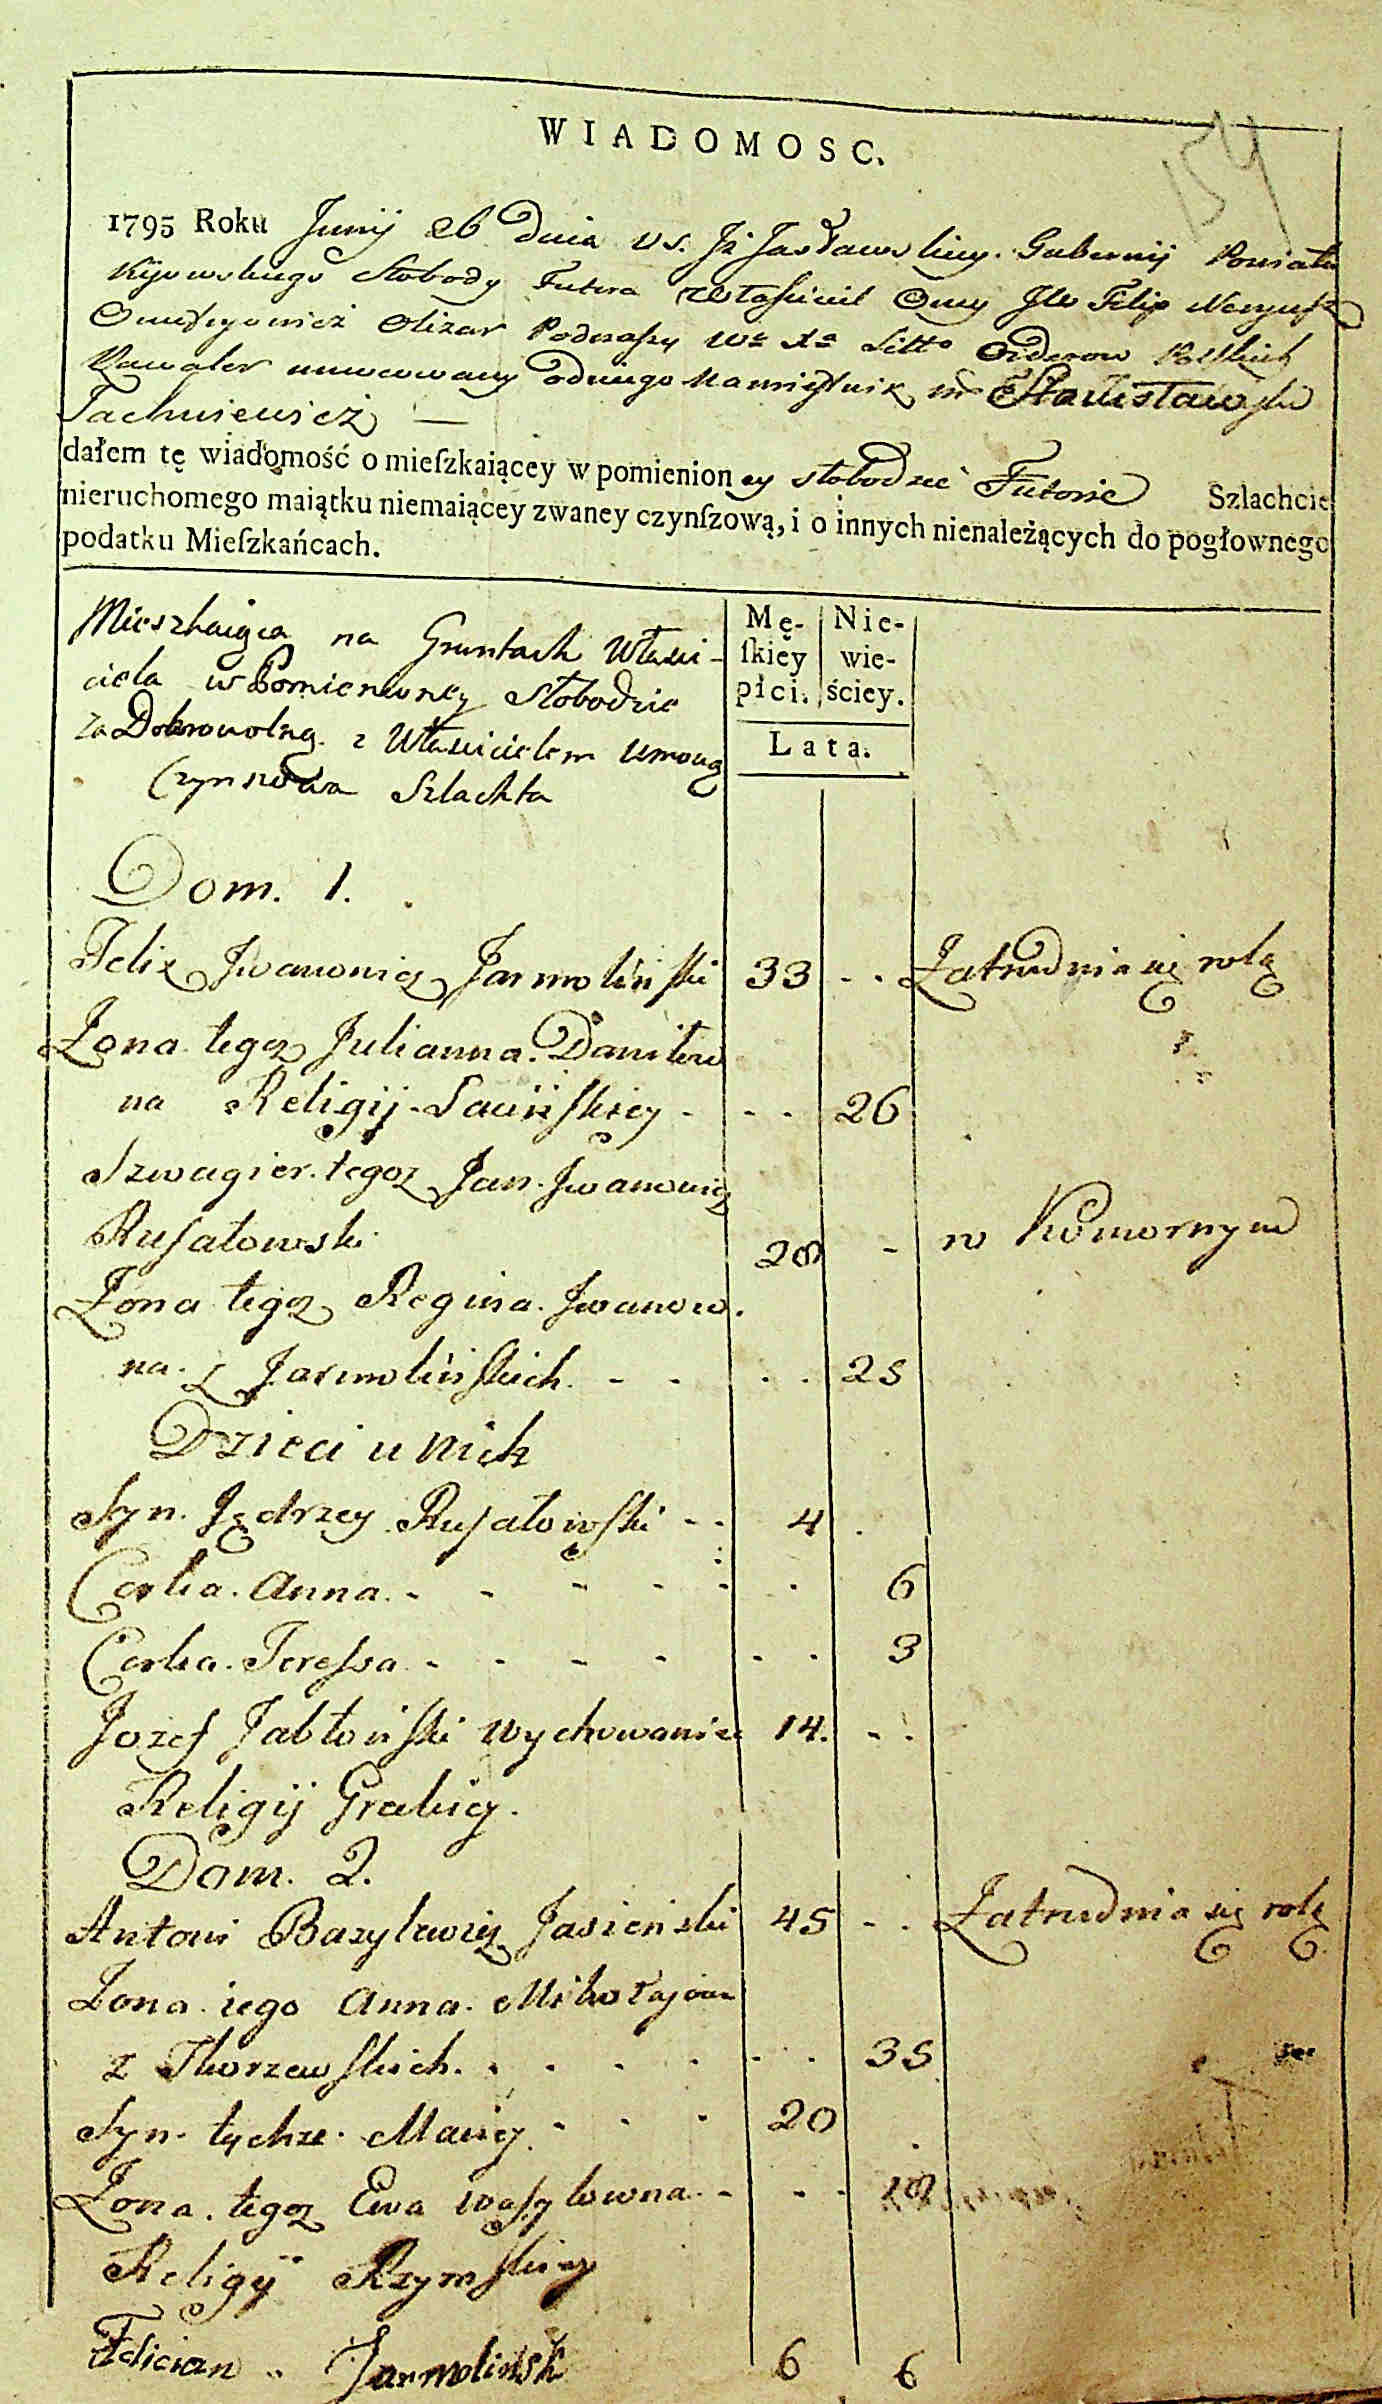 154
WIADOMOSC.
1795 Roku Junij 26 Dnia V.S. Jż Jasławskiey Gubernij Powiatu
Kijowskiego Słobody Futora właściciel JW Filip Neryusz
Onufryowicz Olizar Podczaszy Wo Xa Litto Orderow Polskich
Kawaler umocowany odniego Namiesnik Stanisław
Jachniewicz —
dałem tę wiadomość o mieſzkaiącey w pomienioney słobodzie Futorie Szlachcie
nieruchomego maiątku niemaiącey zwaney czynſzową, i o innych nienależących do pogłownego
podatku Mieſzkańcach.
Mieszkaiąca na Gruntach Właści-
ciela w Pomienioney Słobodzie
za Dobrowolną z Właścicielem Umową
Czynszowa Szlachta
Mę-
ſkiey
płci.
Nie-
wie-
ściey.
Lata.
Dom. 1.
Felix Jwanowicz Jarmoliński 33 - - Zatrudnia się rolą
Żona tegoz Julianna. Daniłow
na Religij Lacińskiey - - - 26
Szwagier tegoz Jan Jwanowicz
Rusałowski 28 - w Komornym
Żona tegoz Regina. Jwanow.
na z Jarmolińskich. - - . . 25
Dzieci u nich
Syn. Jędrzey Rusałowski - - 4 .
Corka. Anna. - - - - - . 6
Corka. Teressa - - - - - . 3
Jozef Jabłoński Wychowaniec 14. - .
Religij Grekiey.
Dom. 2.
Antoni Bazylewicz Jasieński 45 - . Zatrudnia się rolą
Żona iego Anna. Mikołajowna
z Tworzewskich. . . . . . . 35
Syn tychze Maciey. - - - 20
Żona. tegoz Ewa Wasylowna. - - - 18
Religij Rzymskiey
Felician .. Jarmolińsk 6 6